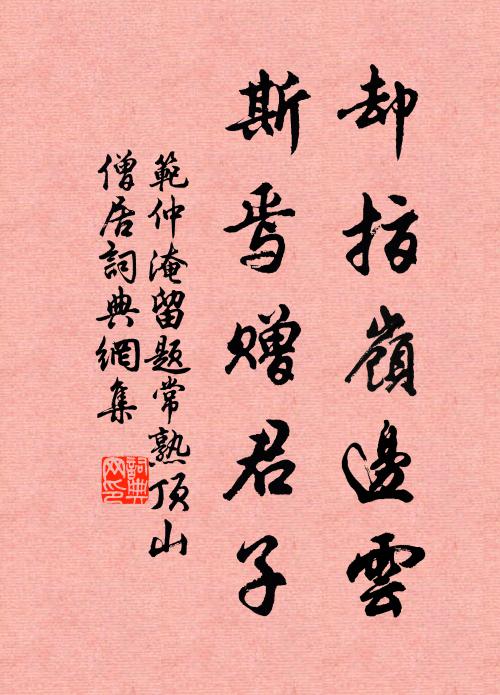 却指嶺邊雲
斯焉贈君子
範仲淹留題常熟頂山
僧居詞典網集
詞典
网印